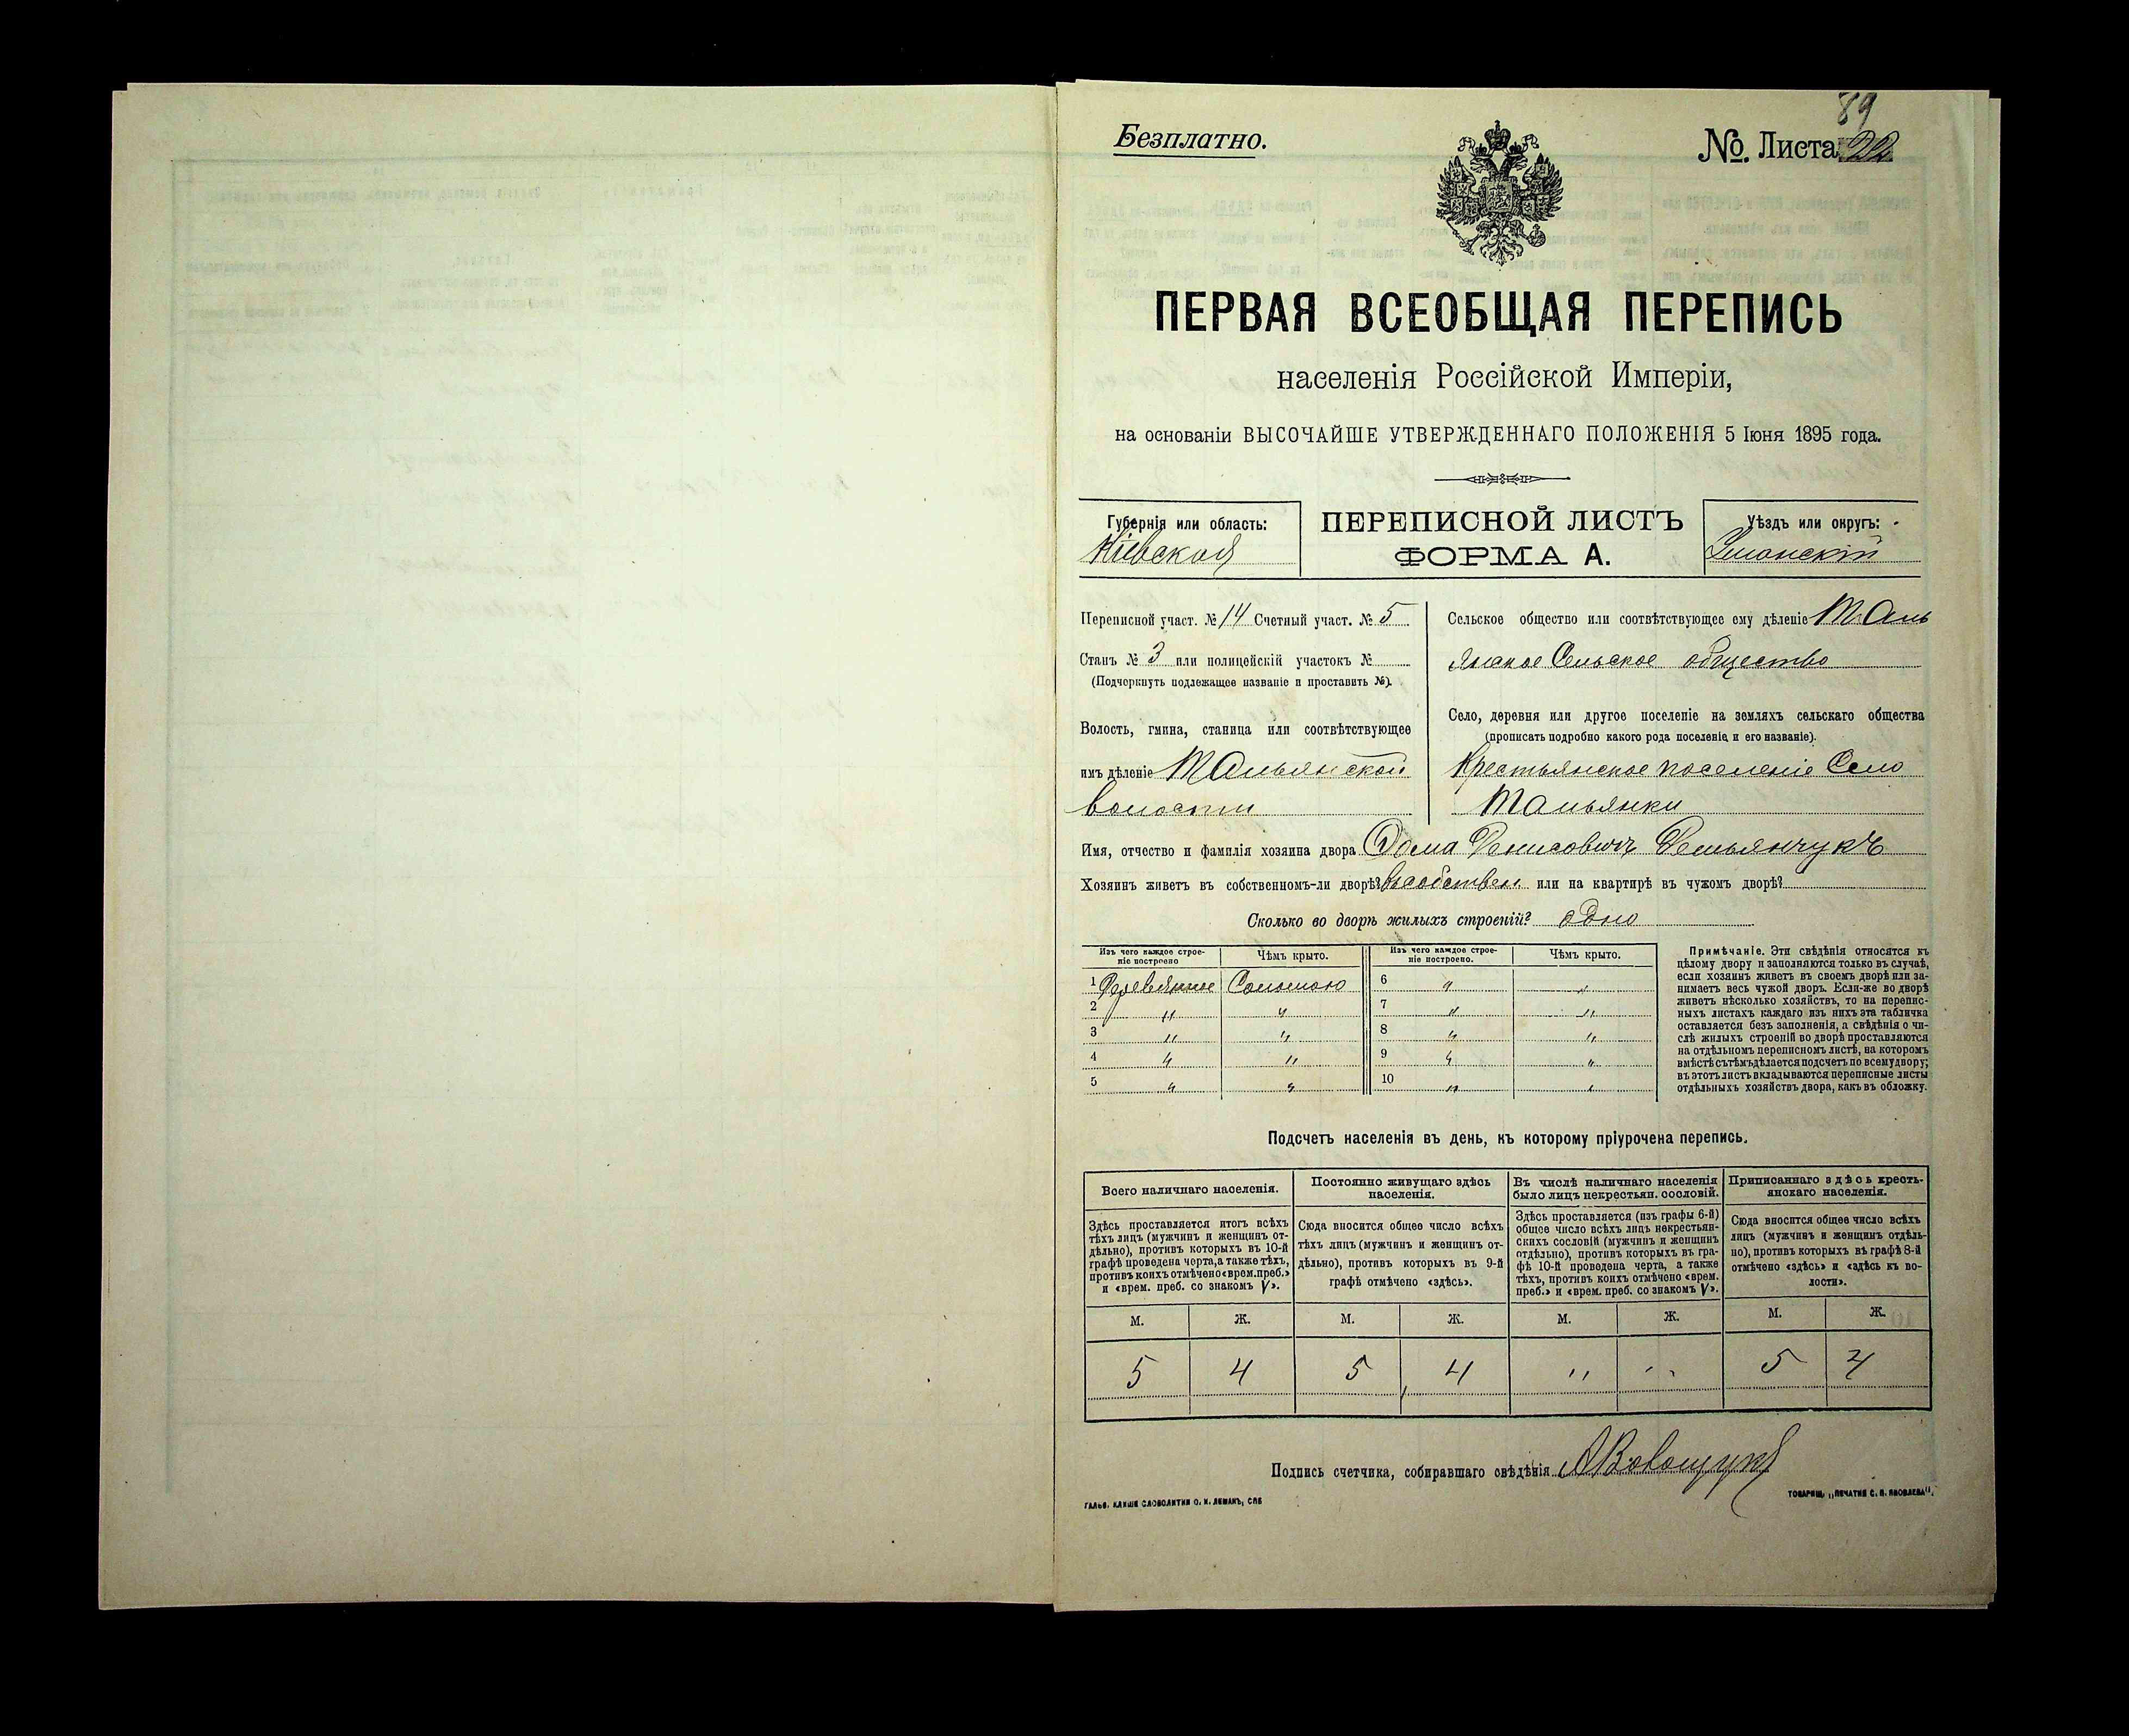 89
Безплатно.
№. Листа 22
ПЕРВАЯ ВСЕОБЩАЯ ПЕРЕПИСЬ
населенія Россійской Имперіи,
на основаніи ВЫСОЧАЙШЕ УТВЕРЖДЕННАГО ПОЛОЖЕНІЯ 5 Іюня 1895 года.
Губернія или область:
Кіевская
ПЕРЕПИСНОЙ ЛИСТЪ
ФОРМА А.
Уѣздъ или округъ:
Уманскій
Переписной участ. № 14 Счетный участ. № 5
Станъ № 3 или полицейскій участокъ №
(Подчеркнуть подлежащее названіе и проставить №).
Волость, гмина, станица или соотвѣтствующее
имъ дѣленіе Тальянской
волости
Сельское общество или соотвѣтствующее ему дѣленіе Таль
янское Сельское общество
Село, деревня или другое поселеніе на земляхъ сельскаго общества
(прописать подробно какого рода поселеніе и его названіе).
Крестьянское поселеніе Село
Тальянки
Имя, отчество и фамилія хозяина двора Фома Денисовичъ Демьянчукъ
Хозяинъ живетъ въ собственномъ-ли дворѣ? въ собствен или на квартирѣ въ чужомъ дворѣ?
Сколько во дворѣ жилыхъ строеній? одно
Изъ чего каждое строе-
ніе построено
Чѣмъ крыто.
Изъ чего каждое строе-
ніе построено.
Чѣмъ крыто.
1 Деревянное Соломою 6 " "
2 " " 7 " "
3 " " 8 " "
4 " " 9 " "
5 " " 10 " "
Примѣчаніе. Эти свѣдѣнія относятся къ
цѣлому двору и заполняются только въ случаѣ,
если хозяинъ живетъ въ своемъ дворѣ или за-
нимаетъ весь чужой дворъ. Если-же во дворѣ
живетъ нѣсколько хозяйствъ, то на перепис-
ныхъ листахъ каждаго изъ нихъ эта табличка
оставляется безъ заполненія, а свѣдѣнія о чи-
слѣ жилыхъ строеній во дворѣ проставляются
на отдѣльномъ переписномъ листѣ, на которомъ
вмѣстѣ съ тѣмъ дѣлается подсчетъ по всему двору;
въ этотъ листъ вкладываются переписные листы
отдѣльныхъ хозяйствъ двора, какъ въ обложку.
Подсчетъ населенія въ день, къ которому пріурочена перепись.
Всего наличнаго населенія.
Постоянно живущаго здѣсь
населенія.
Въ числѣ наличнаго населенія
было лицъ некрестьян. сословій.
Приписаннаго здѣсь кресть-
янскаго населенія.
Здѣсь проставляется итогъ всѣхъ
тѣхъ лицъ (мужчинъ и женщинъ от-
дѣльно), противъ которыхъ въ 10-й
графѣ проведена черта, а также тѣхъ,
противъ коихъ отмѣчено «врем. преб.»
и «врем. преб. со знакомъ V».
Сюда вносится общее число всѣхъ
тѣхъ лицъ (мужчинъ и женщинъ от-
дѣльно), противъ которыхъ въ 9-й
графѣ отмѣчено «здѣсь».
Здѣсь проставляется (изъ графы 6-й)
общее число всѣхъ лицъ некрестьян-
скихъ сословій (мужчинъ и женщинъ
отдѣльно), противъ которыхъ въ гра-
фѣ 10-й проведена черта, а также
тѣхъ, противъ коихъ отмѣчено «врем.
преб.» и «врем. преб. со знакомъ V».
Сюда вносится общее число всѣхъ
лицъ (мужчинъ и женщинъ отдѣль-
но), противъ которыхъ въ графѣ 8-й
отмѣчено «здѣсь» и «здѣсь къ во-
лости».
М. Ж. М. Ж. М. Ж. М. Ж.
5 4 5 4 " " 5 4
Подпись счетчика, собиравшаго свѣдѣнія
ГАЛЬВ. КЛИШЕ СЛОВОЛИТНИ О. И. ЛЕМАНЪ, СПБ
ТОВАРИЩ. „ПЕЧАТНЯ С. П. ЯКОВЛЕВА".